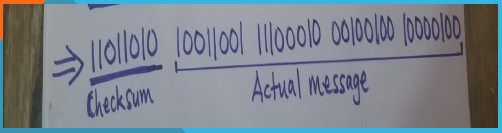 ⇒ 11011010 10011001 11100010 00100100 10000100
Checksum Actual message